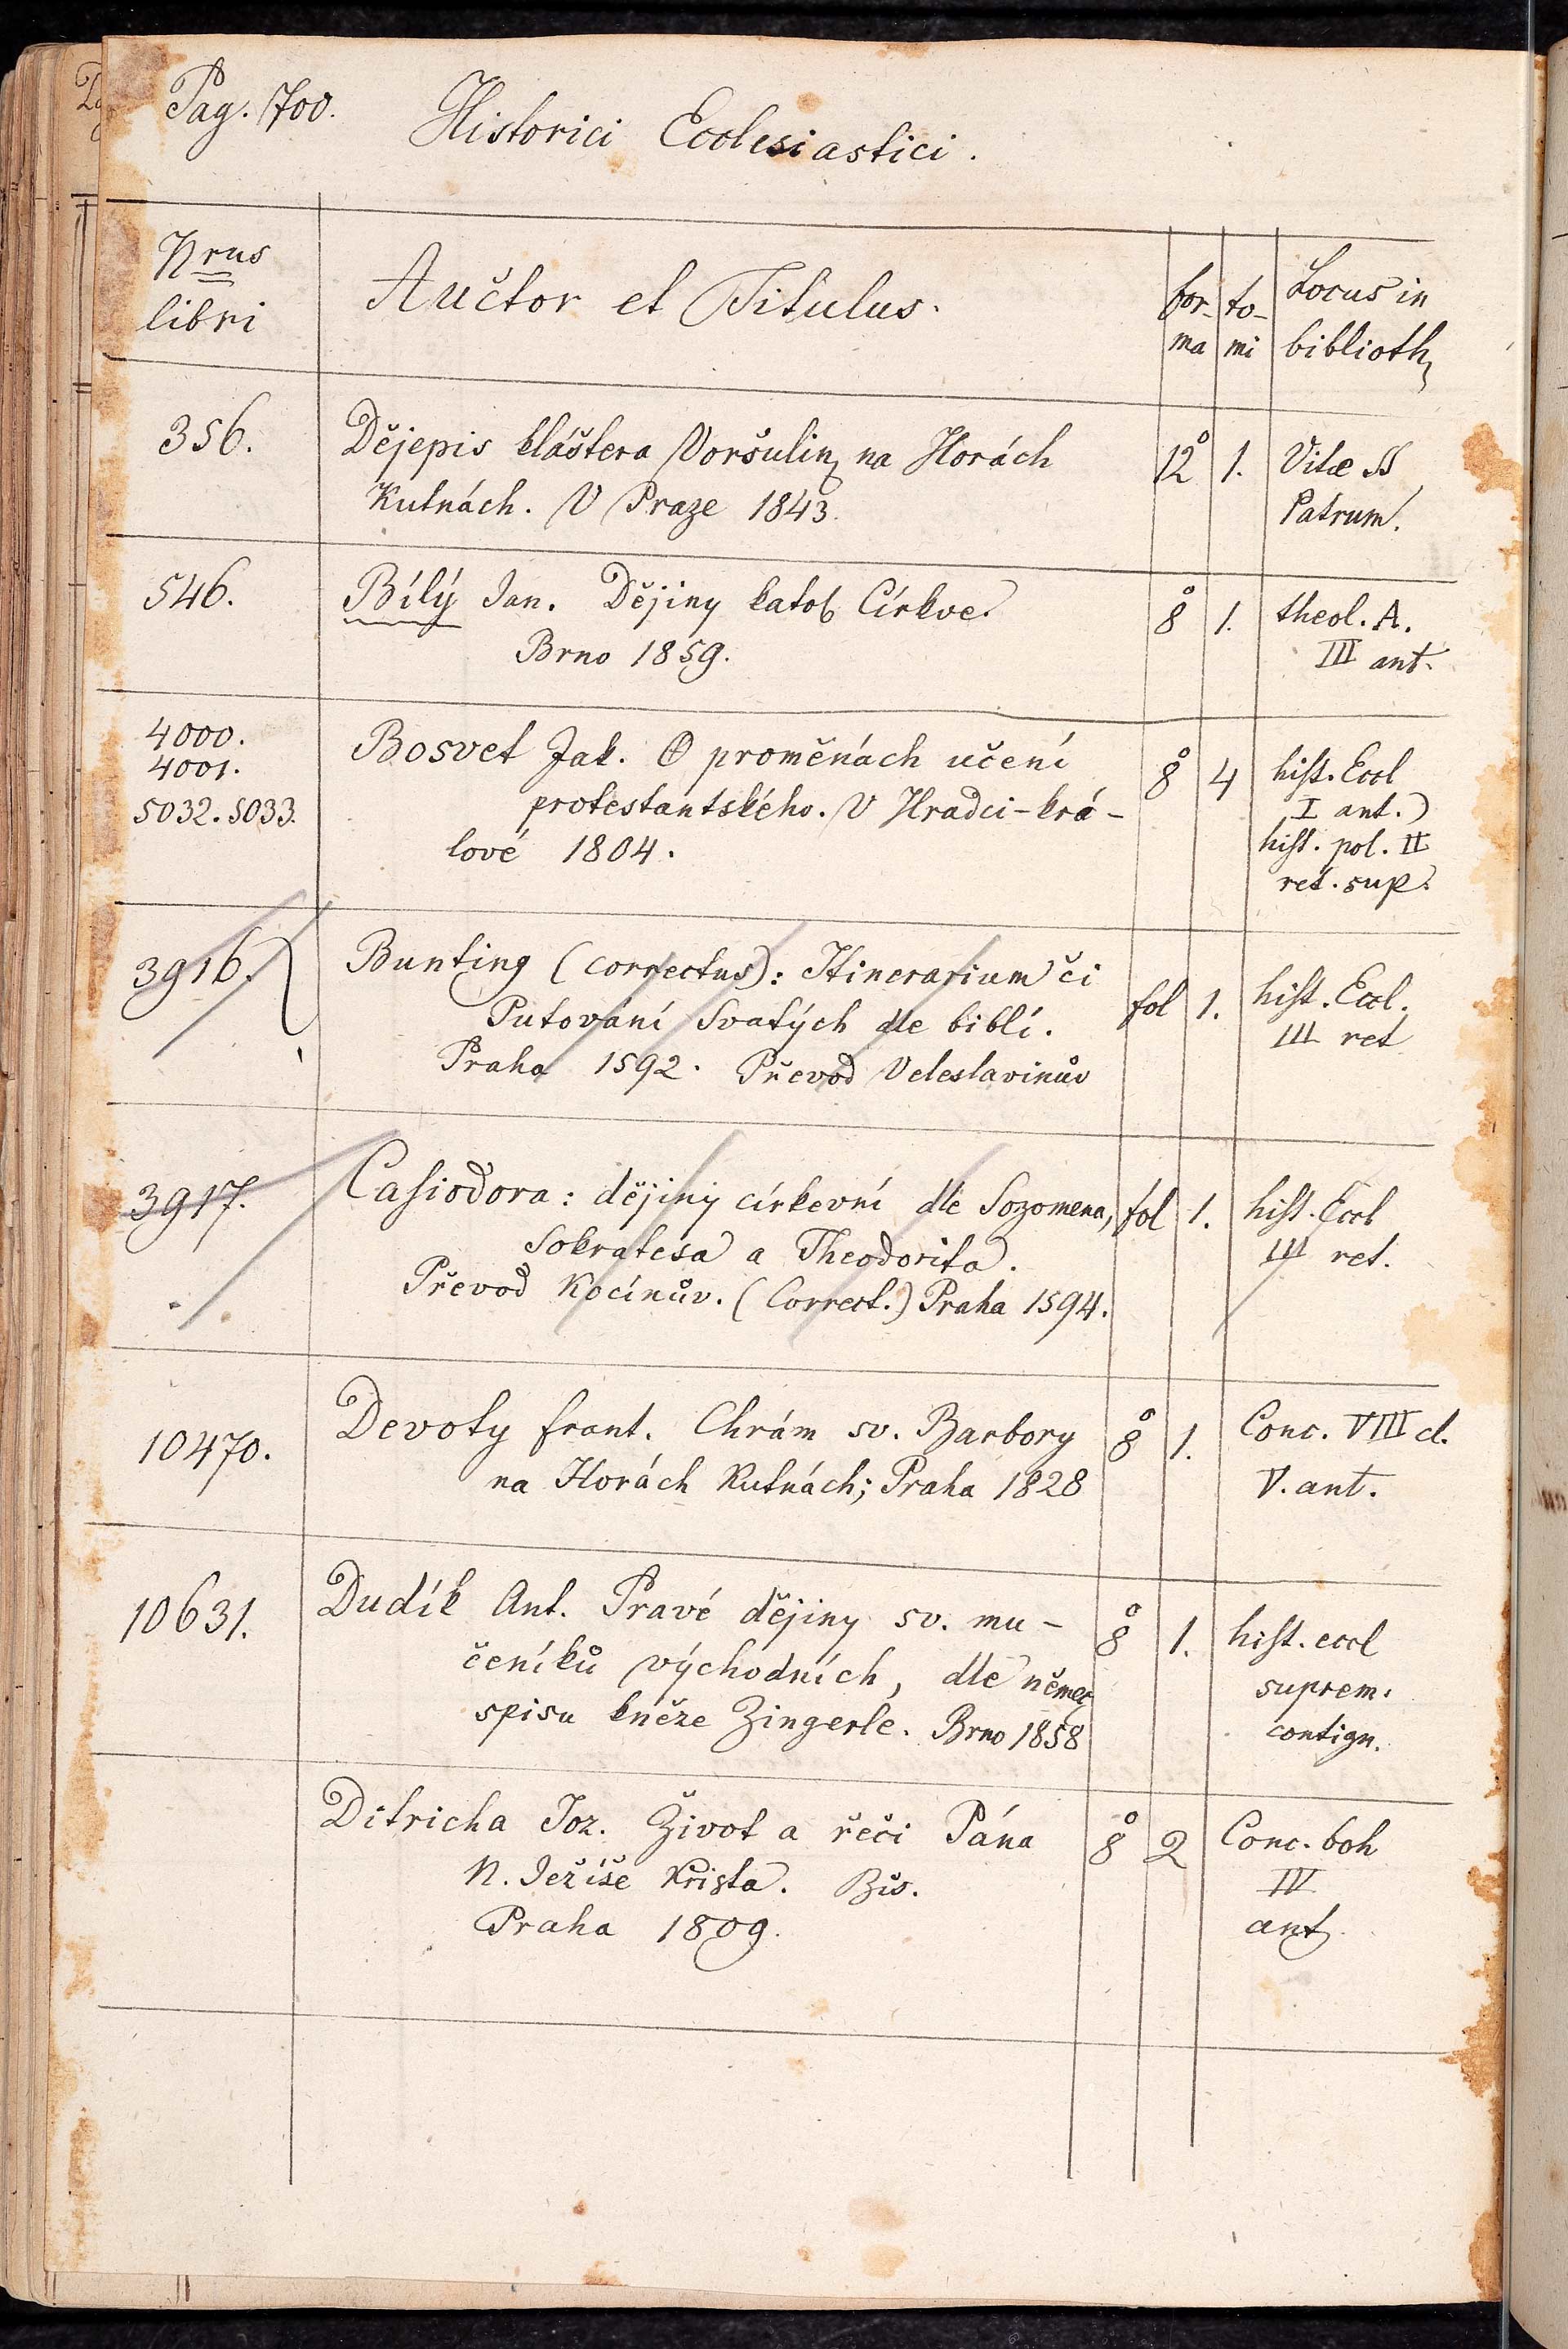 Pag. 700.
Historici Ecclesiastici.
Nrus
libri
Auctor et Titulus.
for-
ma
to-
mi
Locus in
biblioth.
356.
Dějepis kláštera Voršulin. na Horách
Kutnách. V Praze 1843.
12° 1. Vitæ SS
Patrum.
546.
Bílý Jan. Dějiny katol. Církve.
Brno 1859.
8° 1. theol. A.
III ant.
4000.
4001.
5032. 5033.
Bosvet Jak. O proměnách učení
protestantského. V Hradci-krá-
lové 1804.
8° 4 hist. Eccl
I ant.)
hist. pol. II
ret. sup.
3916.
Bunting (correctus): Itinerarium či
Putování Svatých dle biblí.
Praha 1592. Převod Veleslavinův
fol 1. hist. Eccl.
III ret
3917.
Casiodora: dějiny církevní dle Sozomena,
Sokratesa a Theodorita.
Převod Kocínův. (Correct.) Praha 1594.
fol 1. hist. Eccl
III ret.
10470.
Devoty frant. Chrám sv. Barbory
na Horách Kutnách; Praha 1828
8° 1. Conc. VIII d.
V. ant.
10631.
Dudík Ant. Pravé dějiny sv. mu-
čeníků východních, dle němec.
spisu kněze Zingerle. Brno 1858
8° 1. hist. eccl
suprem.
contign.
Ditricha Joz. Život a řeči Pána
N. Ježíše Krista. Bis.
Praha 1809.
8° 2 Conc. boh
IV
ant.